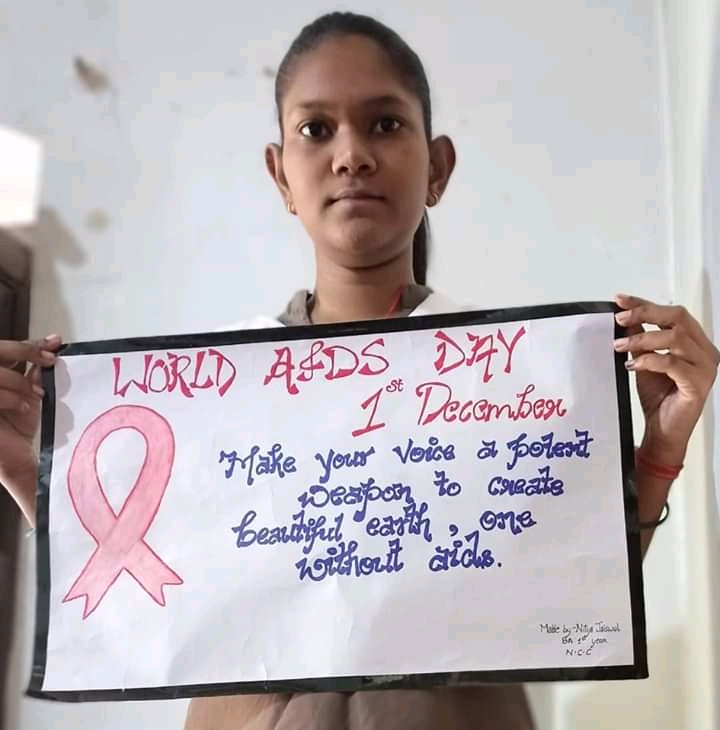 WORLD AIDS DAY
1st December
Make your voice a potent
weapon to create
beautiful earth, one
without aids.
Made by-Nitya Jaiswal
BA 1st year
N.C.C